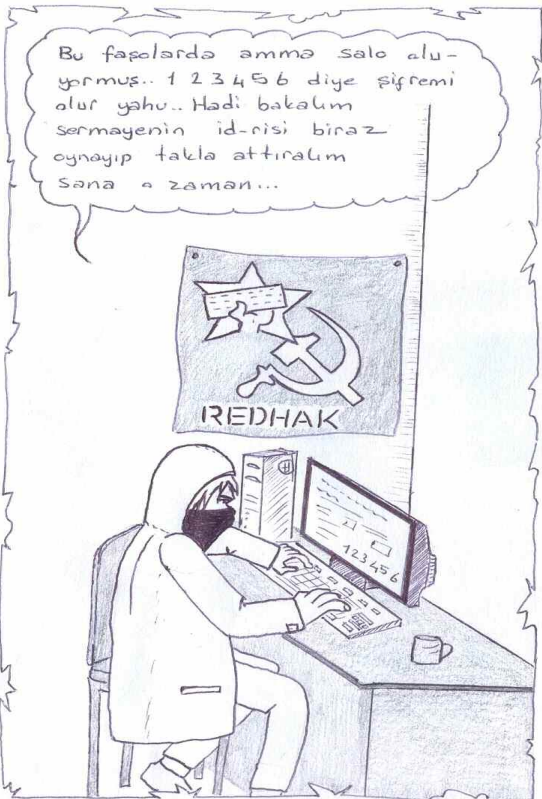 Bu faşolarda amma salo olu-
yormuş.. 1 2 3 4 5 6 diye şifremi
olur yahu.. Hadi bakalım
sermayenin id-risi biraz
oynayıp takla attıralım
sana o zaman...
REDHAK
123456